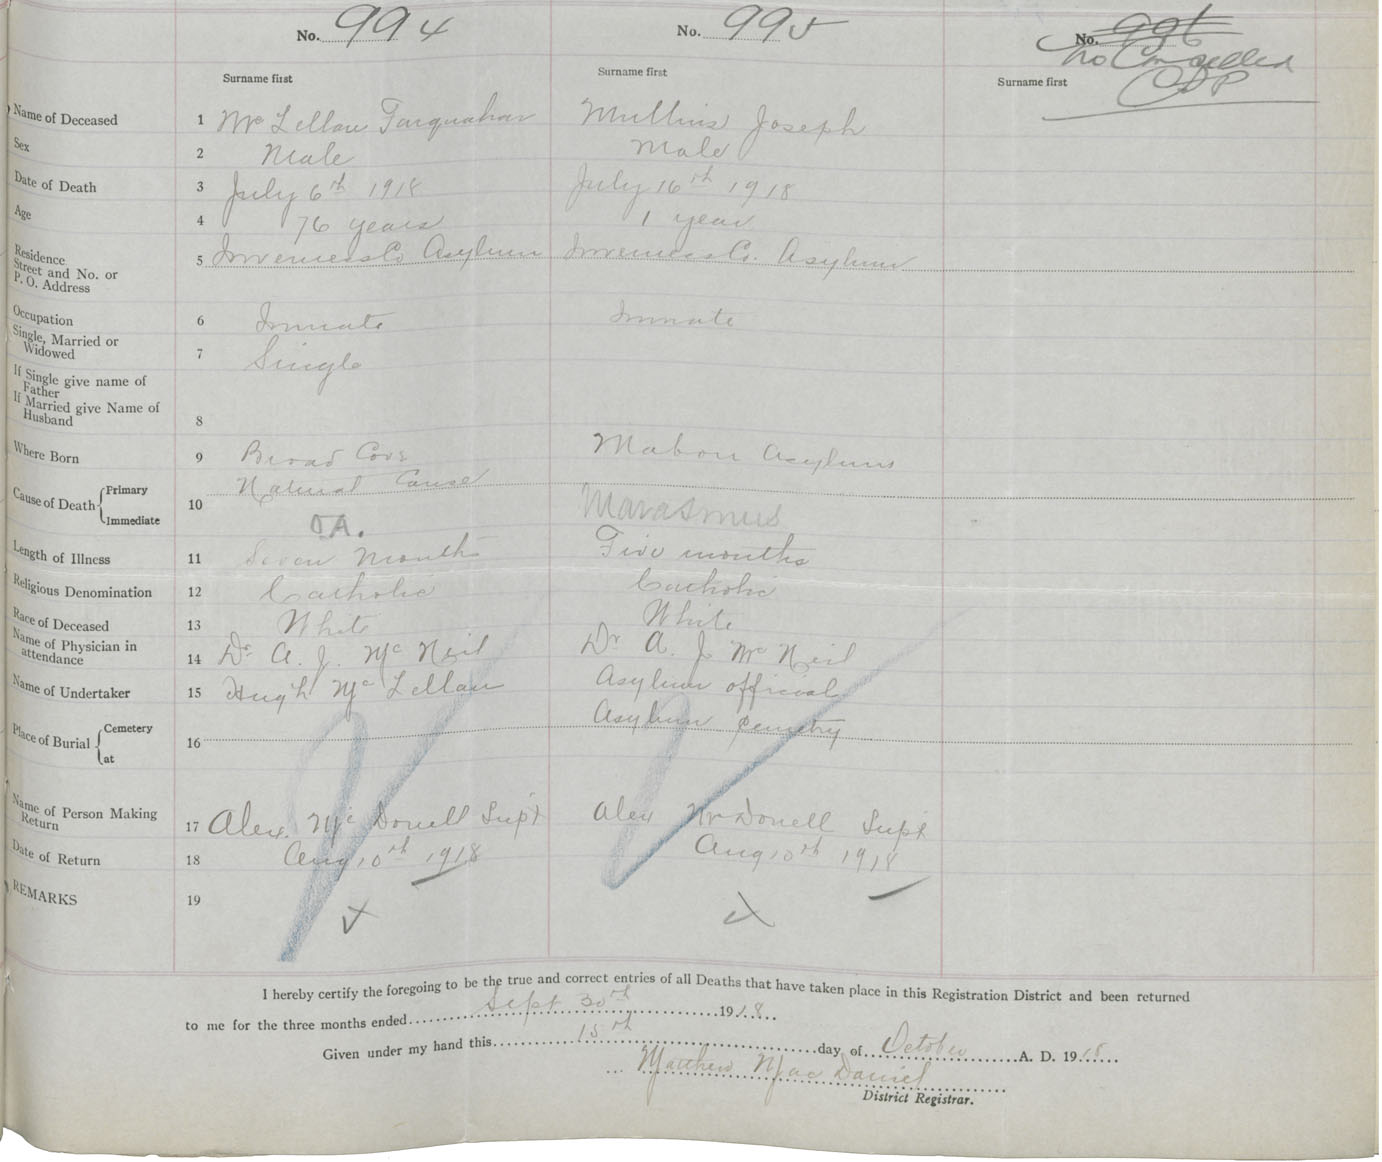 No. 994
No. 995
No. 996
No Cancelled
Surname first
Surname first
Surname first
Name of Deceased 1 McLellan Farquahar Mullins Joseph
Sex 2 Male Male
Date of Death 3 July 6th 1918 July 16th 1918
Age 4 76 years 1 year
Residence
Street and No. or
P. O. Address 5 Inverness Co Asylum Inverness Co. Asylum
Occupation 6 Inmate Inmate
Single, Married or
Widowed 7 Single
If Single give name of
Father
If Married give Name of
Husband 8
Where Born 9 Broad Cove Mabou Asylum
Cause of Death Primary Natural Cause
10 Marasmus
Immediate O A.
Length of Illness 11 Seven Months Five months
Religious Denomination 12 Catholic Catholic
Race of Deceased 13 White White
Name of Physician in
attendance 14 Dr. A. J. McNeil Dr A. J. McNeil
Name of Undertaker 15 Hugh McLellan Asylum official
Place of Burial Cemetery Asylum Cemetry
at 16
Name of Person Making
Return 17 Alex. McDonell Supt Alex McDonell Supt
Date of Return 18 Aug 10th 1918 Aug 10th 1918
REMARKS 19
I hereby certify the foregoing to be the true and correct entries of all Deaths that have taken place in this Registration District and been returned
to me for the three months ended Sept 30th 1918
Given under my hand this 15th day of October A. D. 1918
Matthew MacDaniel
District Registrar.